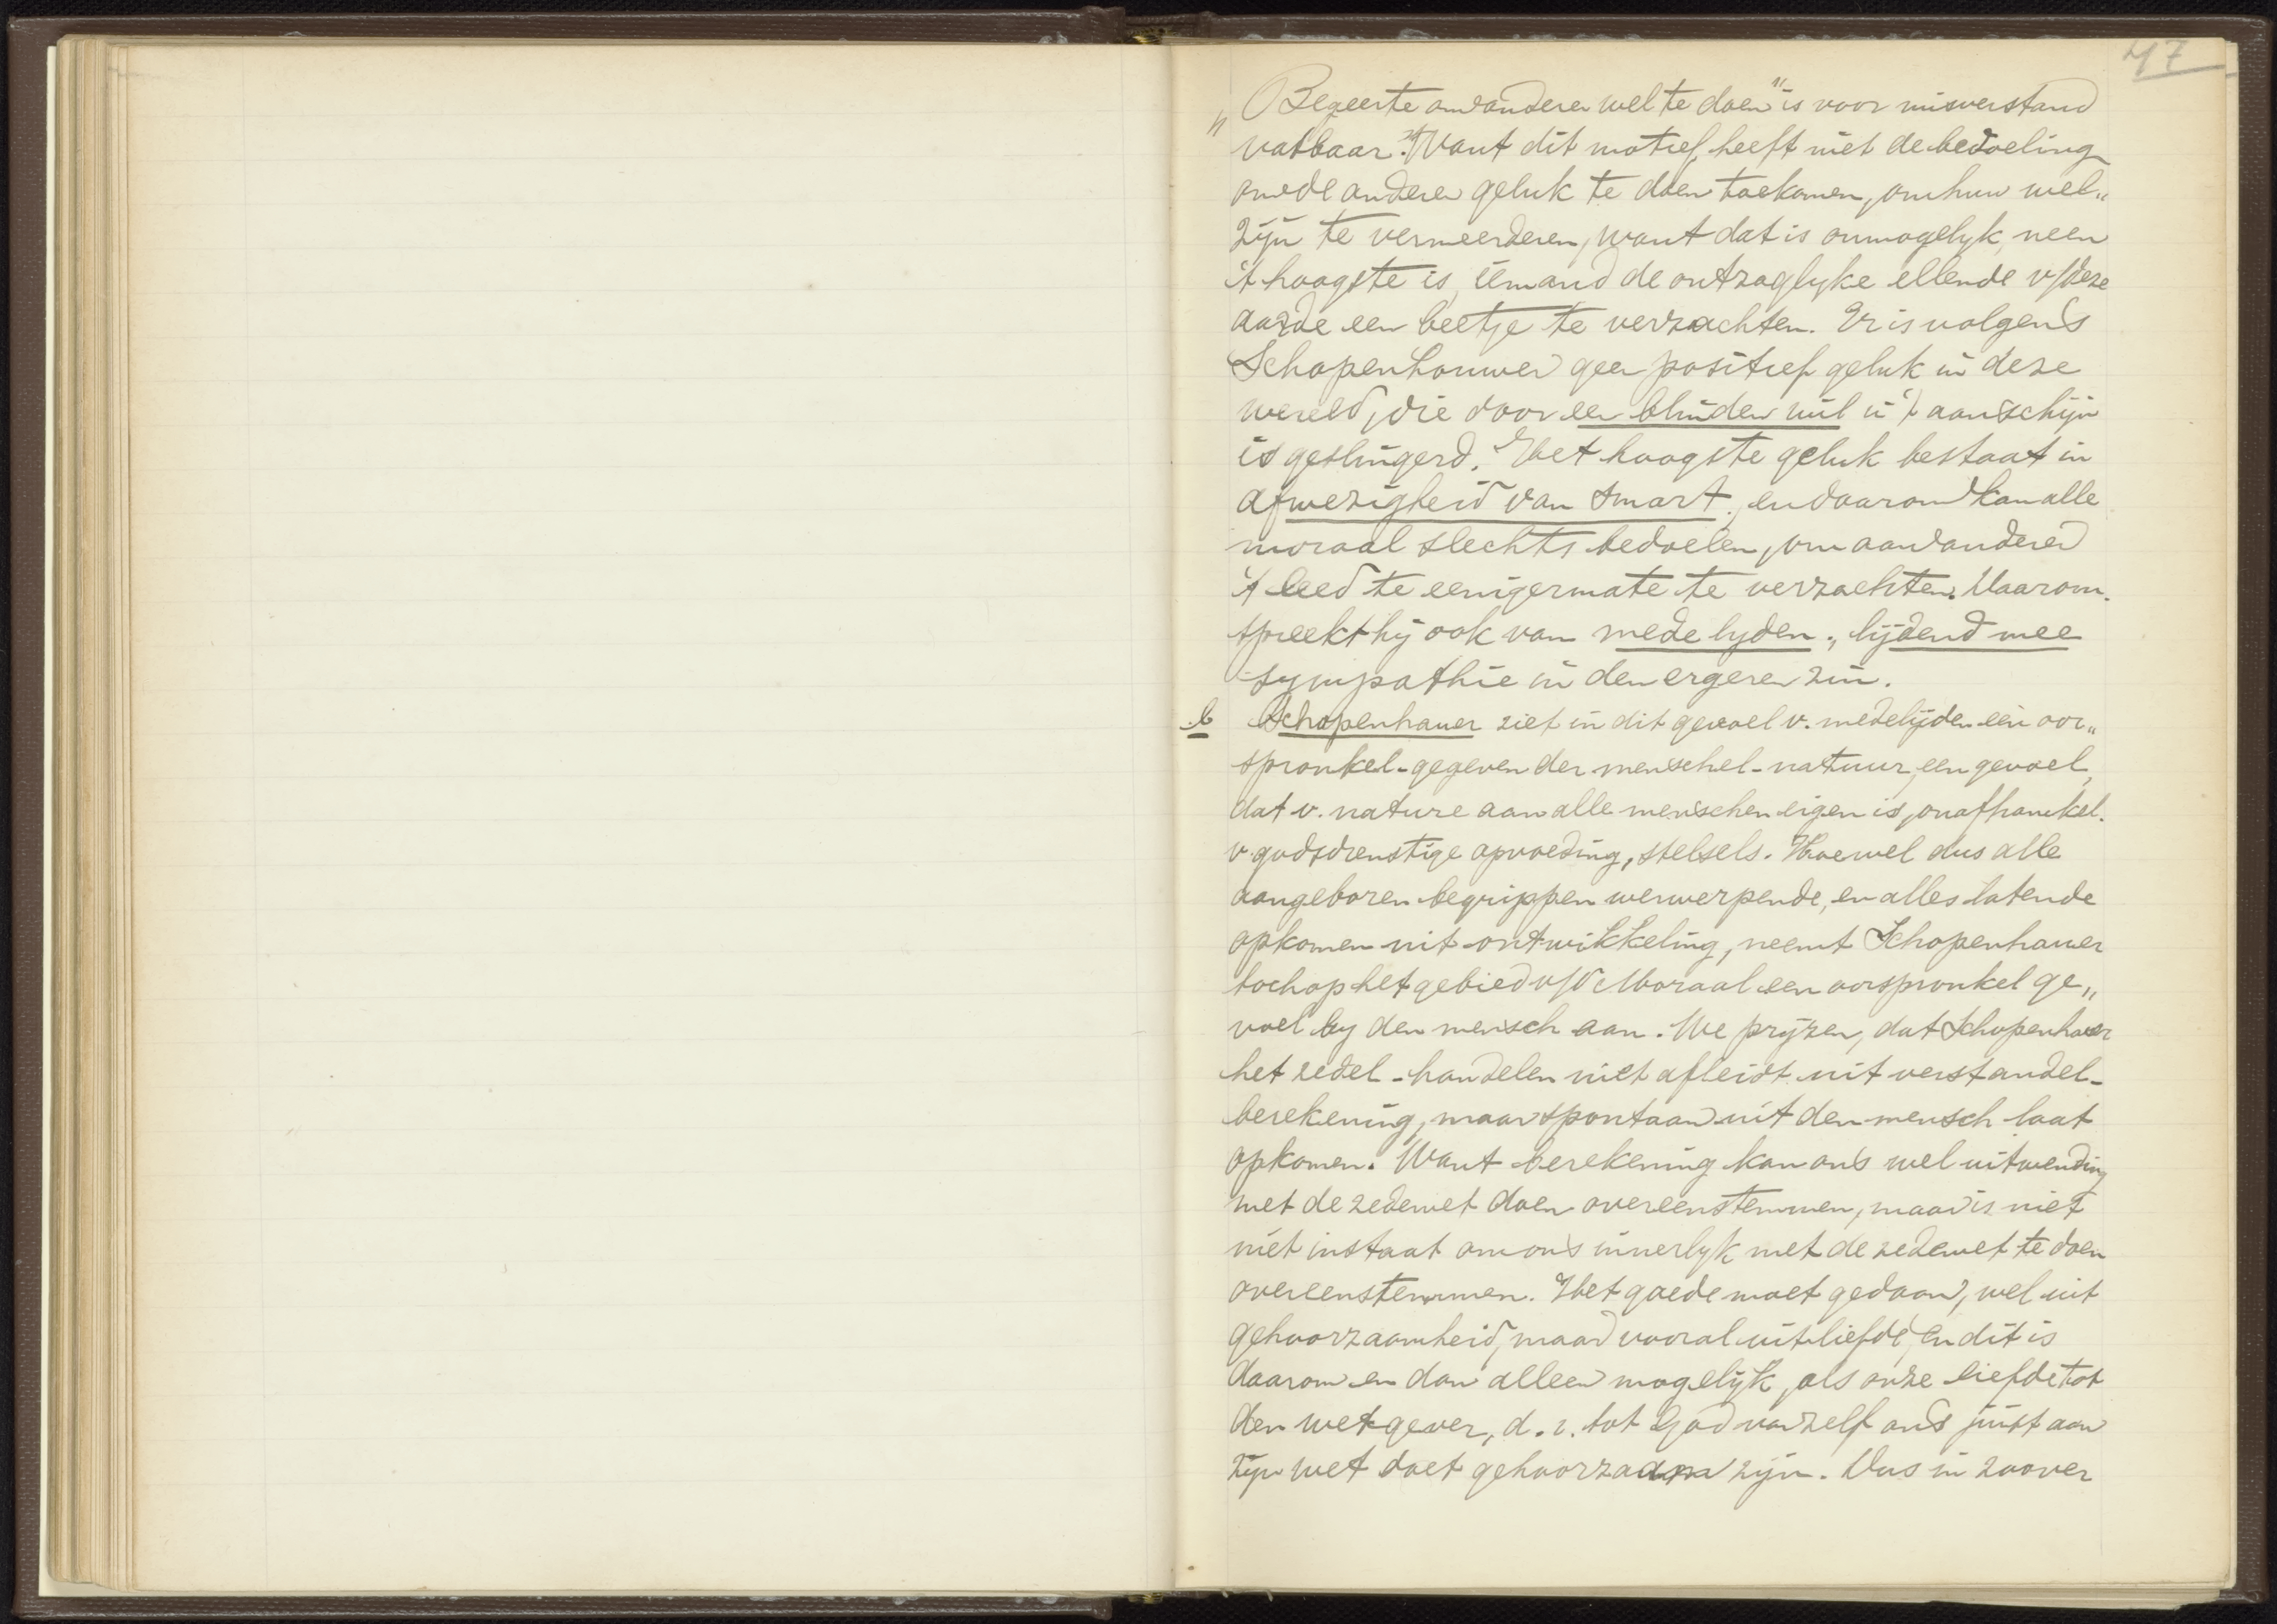 47
„Begeerte om anderen wel te doen" is voor misverstand
vatbaar. Want dit motief heeft niet de bedoeling
om de anderen geluk te doen toekomen, om hun wel„
zijn te vermeerderen, want dat is onmogelyk, neen
't hoogste is, iemand de ontzaglyke ellende v/deze
aarde een beetje te verzachten. Er is volgens
Schopenhouwer geen positief geluk in deze
wereld, die door een blinden wil in 't aanschijn
is geslingerd. Het hoogste geluk bestaat in
afwezigheid van smart, en daarom kan alle
moraal slechts bedoelen, om aan anderen
't leed te eenigermate te verzachten. Daarom
spreekt hij ook van medelyden, lijdend mee
sympathie in den ergeren zin.
b Schopenhauer ziet in dit gevoel v. medelijden een oor„
spronkel-gegeven der menschel-natuur, een gevoel,
dat v. nature aan alle menschen eigen is, onafhankel.
v. godsdienstige opvoeding, stelsels. Hoewel dus alle
aangeboren begrippen verwerpende, en alles latende
opkomen uit ontwikkeling, neemt Schopenhauer
toch op het gebied v/d Moraal een oorspronkel ge„
voel by den mensch aan. We pryzen, dat Schopenhauer
het zedel-handelen niet afleidt uit verstandel-
berekening, maar spontaan uit den mensch laat
opkomen. Want berekening kan ons wel uitwendig
met de zedewet doen overeenstemmen, maar is niet
niet instaat om ons innerlyk met de zedewet te doen
overeenstemmen. Het goede moet gedaan, wel uit
gehoorzaamheid, maar vooral uit liefde, en dit is
daarom en dan alleen mogelijk, als onze liefde tot
den wetgever, d.i. tot God vanzelf ons juist aan
zijn wet doet gehoorzaam zijn. Dus in zoover